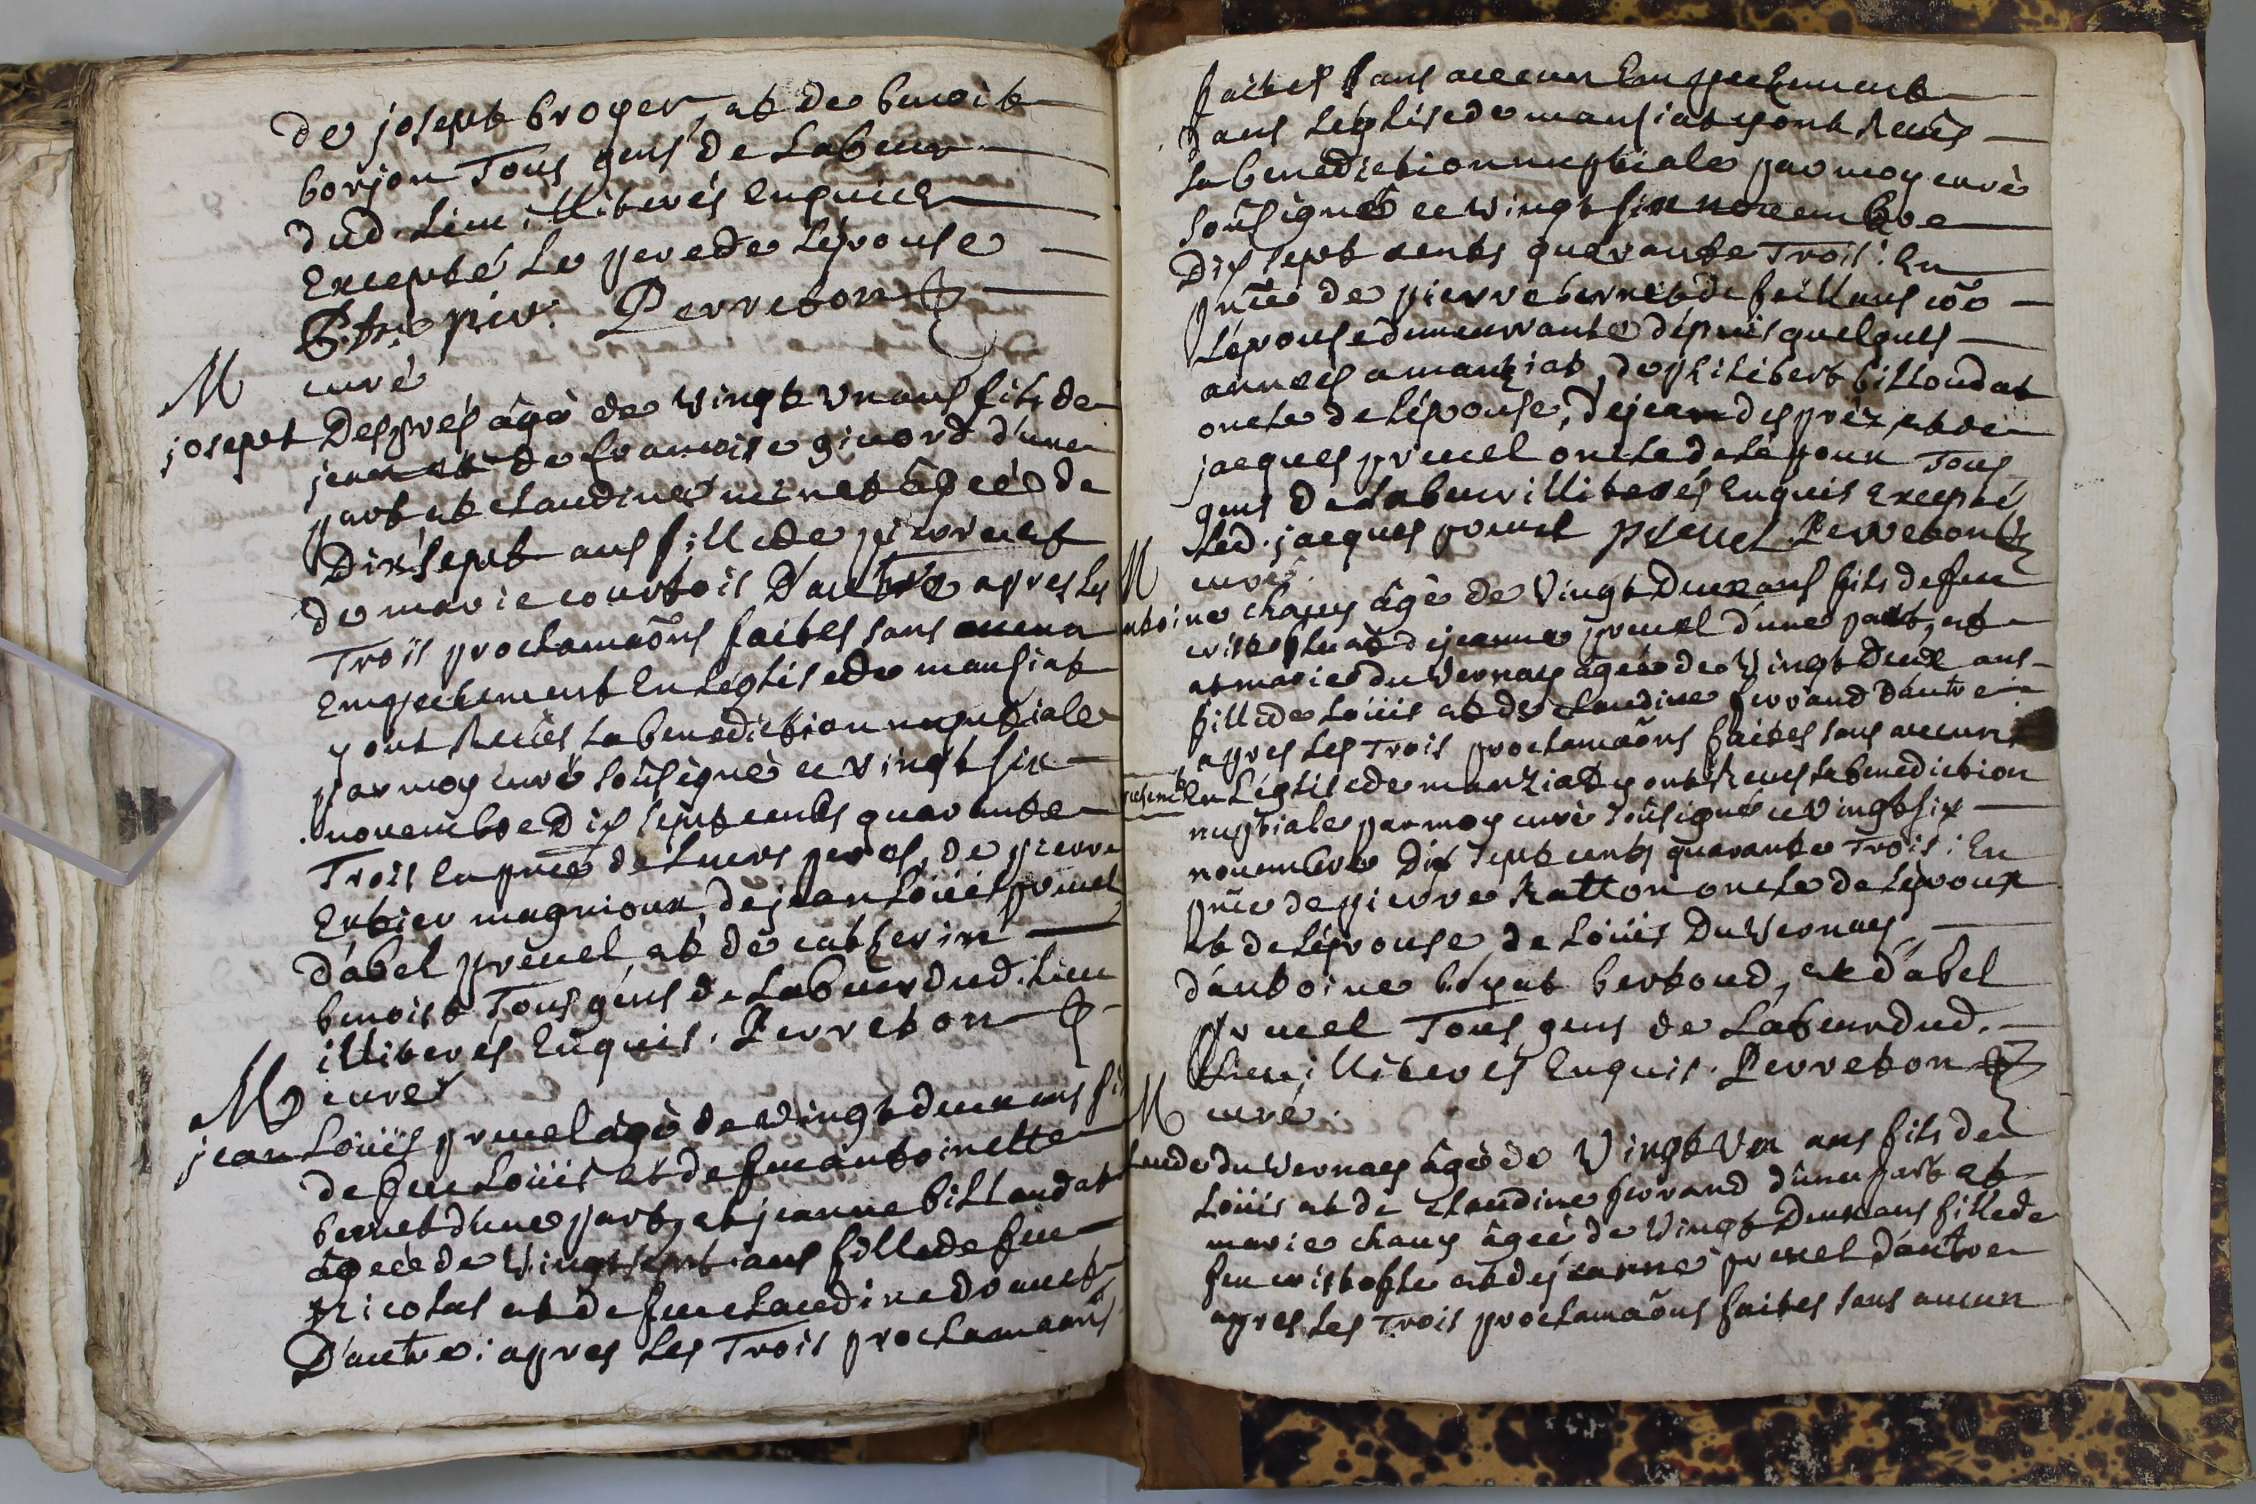 de josept broyer, et de benoit
borjon Tous gens de Labeur
dud. Lieu illiterés Enquis
Excepté Le pere de Lépouse
Perreton
curé
M
josept Desprès âgé de vingt un ans fils de
jean et de francoise givord d'une
part et claudine minet âgeé de
Dix sept ans fille de pierre et
de marie courtois D'autre apres les
Trois proclamaõns faites sans aucun
Empechement En Léglise de mansiat
y ont Reçus La benediction nuptiale
par moy curé soûsigné ce vingt six
novembre Dix sept cents quarante
Trois En pñce de Leurs peres, de pierre
magnioux, de jean Loüis pruel
d'abel pruel, et de catherin
benoist Tous gens de Labeur dud. Lieu
illiteres Enquis. Perreton
curé
M
jean Loüis pruel âgé de vingt deux ans fils
de feu Loüis et de feu antoinette
bernet d'une part, et jeanne billoudat
âgeé de vingt sept ans fille de feu
nicolas et de feu claudine drouet
D'autre: apres Les Trois proclamaõns
faites sans aucun Empechement
dans Léglise de mansiat y ont Reçus
La benediction nuptiale par moy curé
soûsigné ce vingt six novembre
Dix sept cents quarante Trois: En
pñce de pierre bernet de feillens
Lépouse demeurante dépuis quelques
années a manziat, de philibert billoudat
oncle de Lépouse, de jean després, et de
jacques pruel oncle de Lépoux Tous
gens de Labeur illiterés Enquis Excepté
Led. jacques pruel pruel Perreton
curé.
M
ntoine chany âgé de vingt Deux ans fils de feu
cristophe et de jeanne pruel d'une part, et
et marie du vernay âgeé de vingt Deux ans
fille de Loüis et de claudine ferrand D'autre
apres Les Trois proclamaõns faites sans aucun
En Léglise de manziat y ont Reçus La benediction
nuptiale par moy curé soûsigné ce vingt six
novembre Dix sept cents quarante Trois: En
pñce de pierre Ratton oncle de Lépoux
et de Lépouse de Loüis Du Vernay
d'antoine boyat bertoud, et d'abel
pruel Tous gens de Labeur dud.
Lieu illiterés Enquis. Perreton
curé.
M
laude du Vernay âgé de Vingt Un ans fils de
Loüis et de claudine ferrand d'une part et
marie chany âgeé de Vingt Deux ans fille de
feu cristophe et de jeanne pruel d'autre
apres Les Trois proclamaõns faites sans aucun